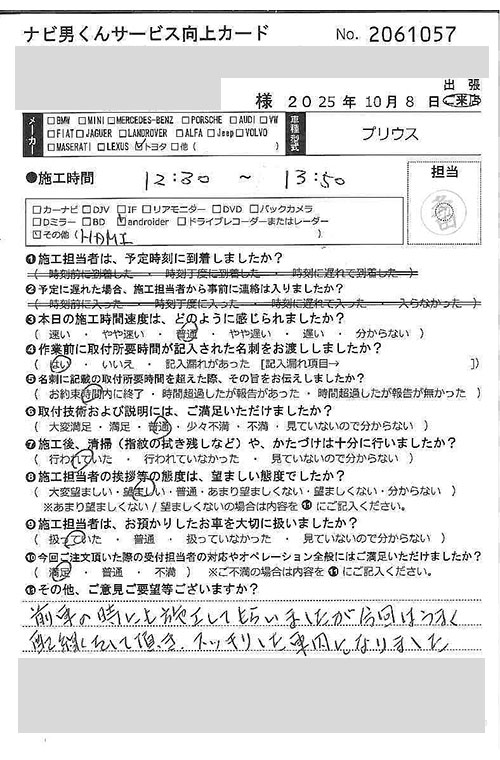 ナビ男くんサービス向上カード No. 2061057
様 2025年 10月 8日 出張・来店
メーカー
□BMW □MINI □MERCEDES-BENZ □PORSCHE □AUDI □VW
□FIAT □JAGUER □LANDROVER □ALFA □Jeep □VOLVO
□MASERATI □LEXUS ☑トヨタ □他( )
車種型式 プリウス
●施工時間 12:30 ~ 13:50
担当
□カーナビ □DJV □IF □リアモニター □DVD □バックカメラ
□Dミラー □BD ☑androider □ドライブレコーダーまたはレーダー
☑その他(HDMI )
❶施工担当者は、予定時刻に到着しましたか?
( 時刻前に到着した ・ 時刻丁度に到着した ・ 時刻に遅れて到着した )
❷予定に遅れた場合、施工担当者から事前に連絡は入りましたか?
( 時刻前に入った ・ 時刻丁度に入った ・ 時刻に遅れて入った ・ 入らなかった )
❸本日の施工時間速度は、どのように感じられましたか?
( 速い ・ やや速い ・ 普通 ・ やや遅い ・ 遅い ・ 分からない )
❹作業前に取付所要時間が記入された名刺をお渡ししましたか?
( はい ・ いいえ ・ 記入漏れがあった [記入漏れ項目→ ])
❺名刺に記載の取付所要時間を超えた際、その旨をお伝えしましたか?
( お約束時間内に終了 ・ 時間超過したが報告があった ・ 時間超過したが報告が無かった )
❻取付技術および説明には、ご満足いただけましたか?
( 大変満足 ・ 満足 ・ 普通 ・ 少々不満 ・ 不満 ・ 見ていないので分からない )
❼施工後、清掃(指紋の拭き残しなど)や、かたづけは十分に行いましたか?
( 行われていた ・ 行われていなかった ・ 見ていないので分からない )
❽施工担当者の挨拶等の態度は、望ましい態度でしたか?
( 大変望ましい・望ましい・普通・あまり望ましくない・望ましくない・分からない )
※あまり望ましくない/望ましくないの場合は内容を⓫にご記入ください。
❾施工担当者は、お預かりしたお車を大切に扱いましたか?
( 扱っていた ・ 普通 ・ 扱っていなかった ・ 見ていないので分からない )
❿今回ご注文頂いた際の受付担当者の対応やオペレーション全般にはご満足いただけましたか?
( 満足 ・ 普通 ・ 不満 ) ※ご不満の場合は内容を⓫にご記入ください。
⓫その他、ご意見ご要望等ございますか?
前車の時にも施工してもらいましたが今回はうまく
配線して頂き、スッキリした車内になりました